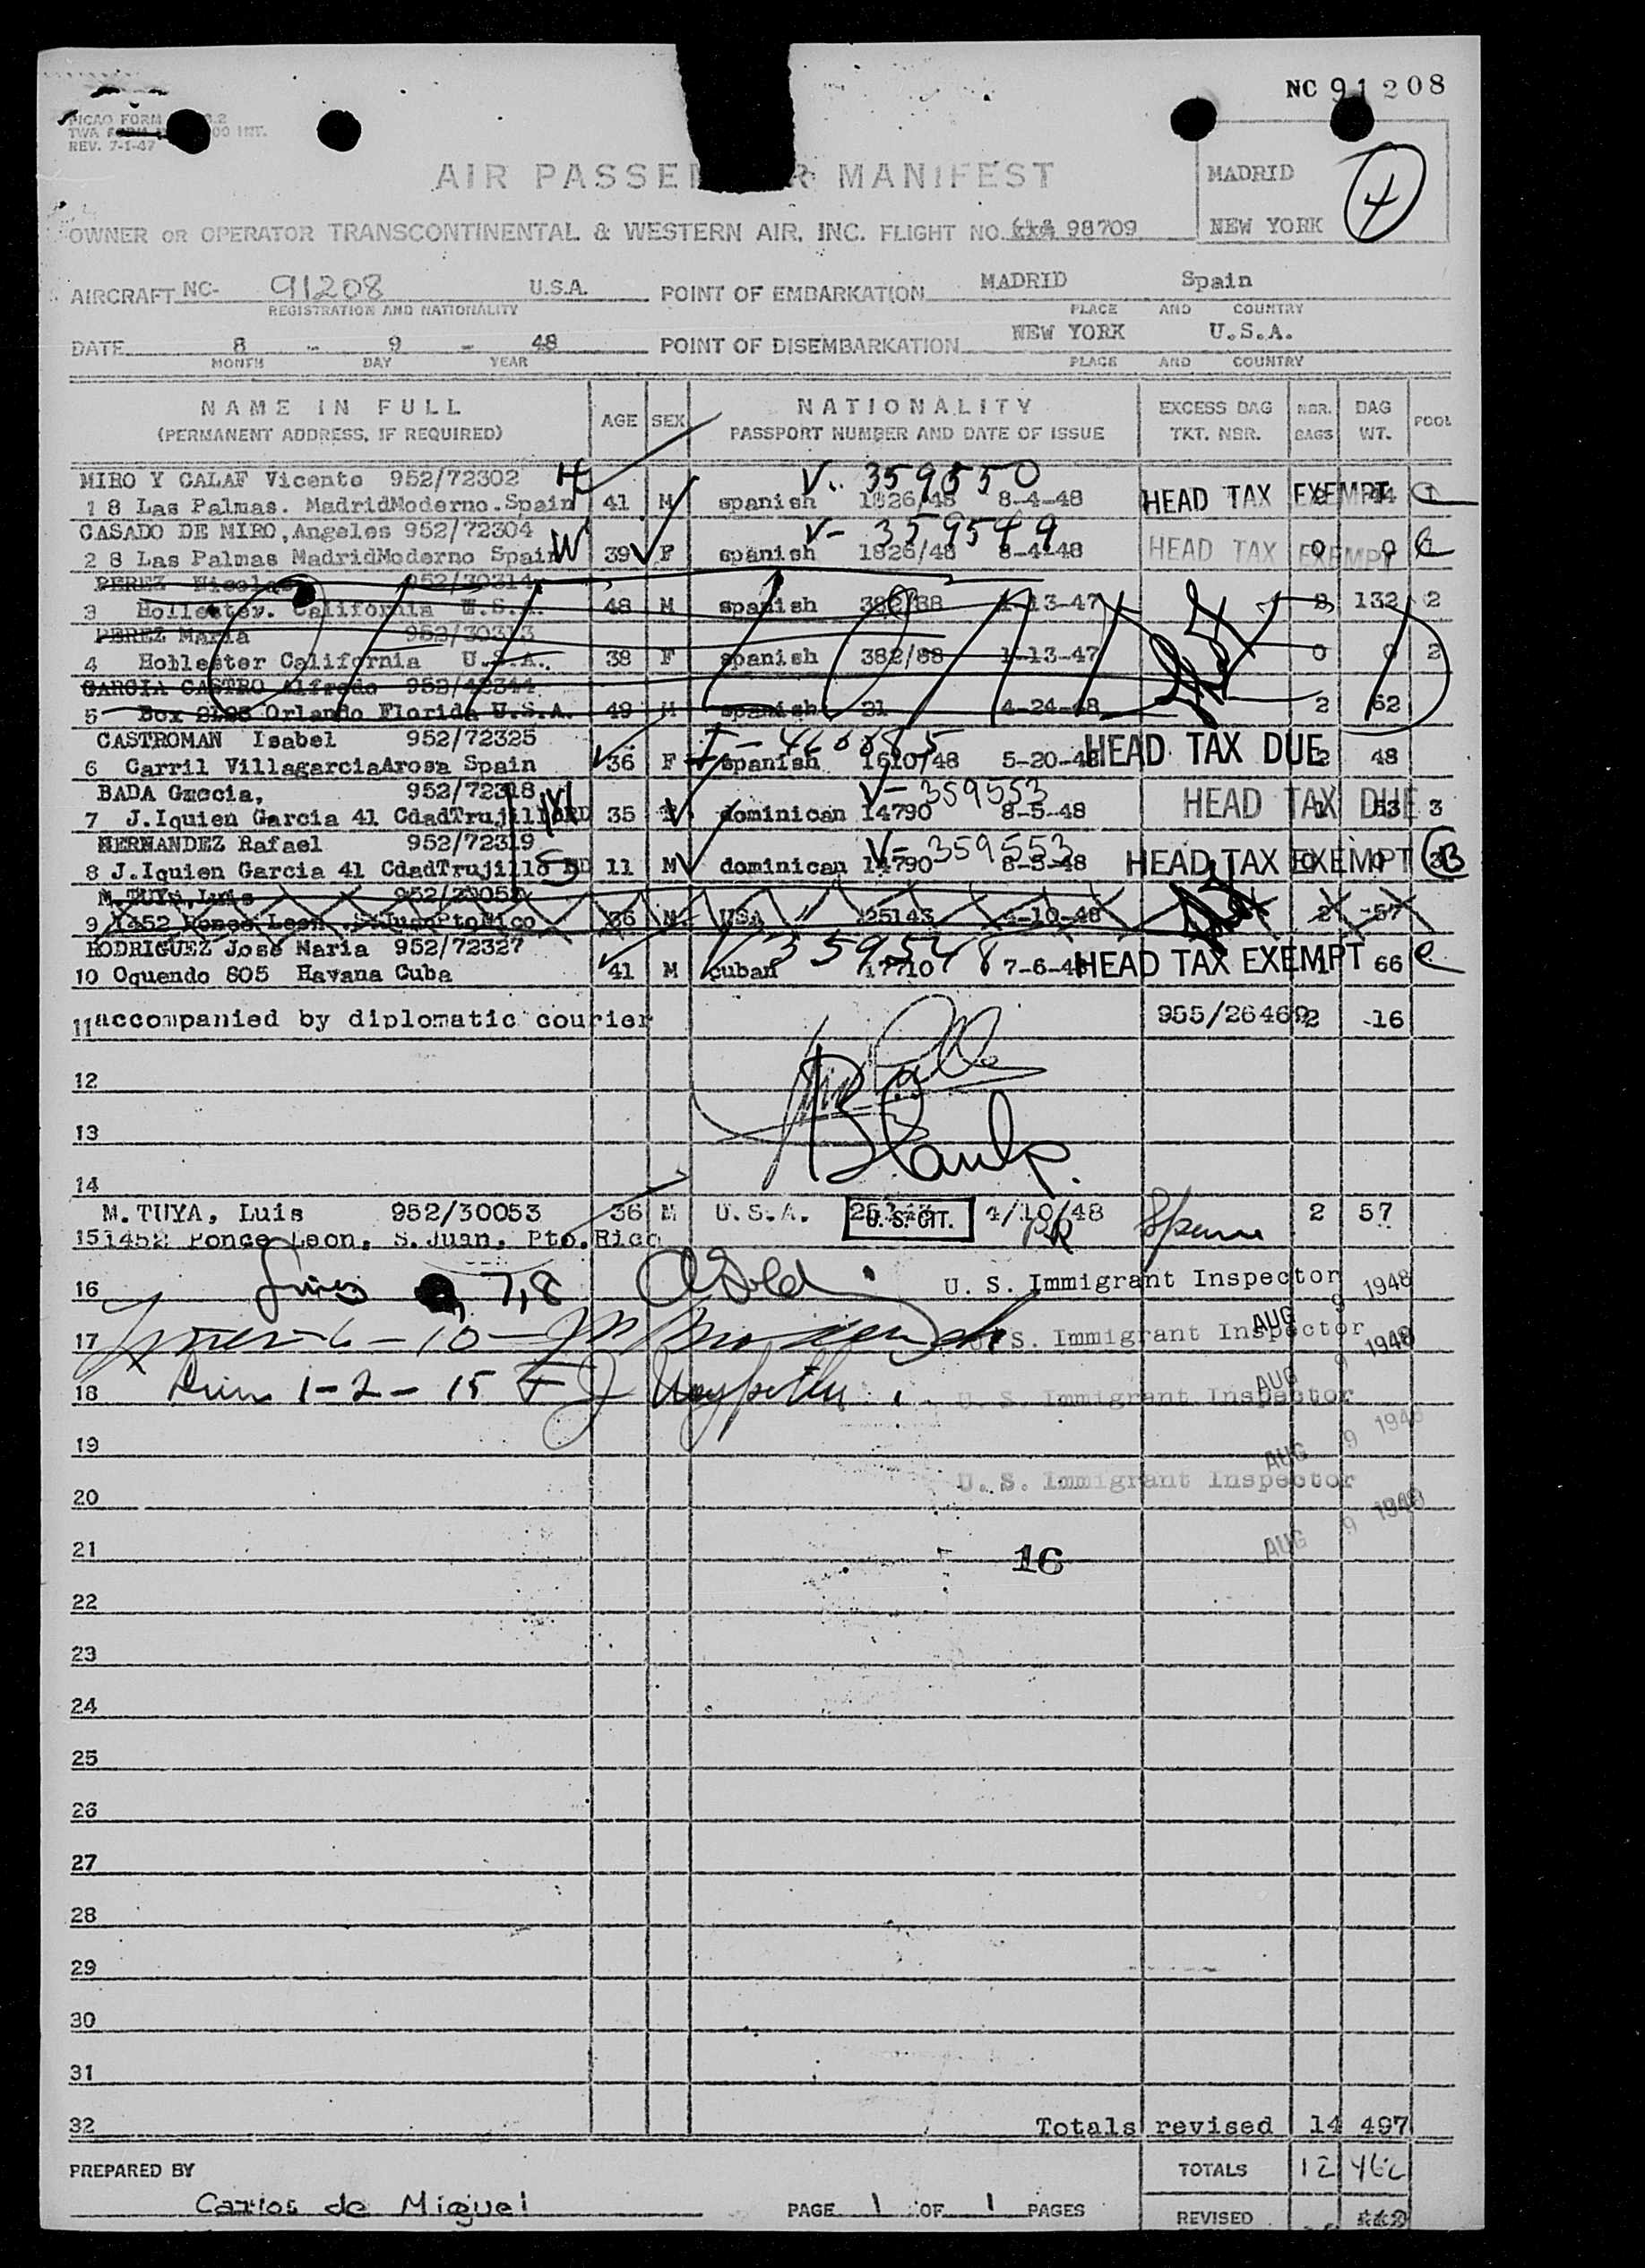 NC 91208
PICAO FORM
TWA
REV. 7-1-47
MADRID
4
AIR PASSE R MANIFEST
OWNER OR OPERATOR TRANSCONTINENTAL & WESTERN AIR, INC. FLIGHT NO. 98709
NEW YORK
AIRCRAFT NC- 91208 U.S.A. POINT OF EMBARKATION MADRID Spain
REGISTRATION AND NATIONALITY PLACE AND COUNTRY
DATE 8 - 9 - 48 POINT OF DISEMBARKATION NEW YORK U.S.A.
MONTH DAY YEAR PLACE AND COUNTRY
NAME IN FULL AGE SEX NATIONALITY EXCESS BAG NBR. BAG POOL
(PERMANENT ADDRESS, IF REQUIRED) PASSPORT NUMBER AND DATE OF ISSUE TKT. NBR. BAGS WT.
MIRO Y CALAF Vicente 952/72302 H V.. 359550
1 8 Las Palmas. MadridModerno.Spain 41 M spanish 1826/48 8-4-48 HEAD TAX EXEMPT 44
CASADO DE MIRO,Angeles 952/72304 V- 359549
2 8 Las Palmas MadridModerno Spain W 39 F spanish 1826/48 8-4-48 HEAD TAX EXEMPT 0 0
PEREZ Nicolas 952/30314
3 Hollester. California U.S.A. 48 M spanish 382/88 1-13-47 132 2
PEREZ Maria 952/30313
4 Hollester California U.S.A. 38 F spanish 382/88 1-13-47 0 0 2
GARCIA CASTRO Alfredo
5 Box Orlando Florida U.S.A. 49 M spanish 21 4-24-48 2 62
CASTROMAN Isabel 952/72325
6 Carril VillagarciaArosa Spain 36 F spanish 1610/48 5-20-48 HEAD TAX DUE 2 48
BADA Gracia, 952/72318 V- 359553
7 J.Iquien Garcia 41 CdadTrujillo RD 35 F dominican 14790 8-5-48 HEAD TAX DUE 53 3
HERNANDEZ Rafael 952/72319 V- 359553
8 J.Iquien Garcia 41 CdadTrujillo RD 11 M dominican 14790 8-5-48 HEAD TAX EXEMPT 0 0 B
M.TUYA,Luis
9 1452 Ponce Leon .S.JuanPtoRico 36 M USA 25143 4-10-48 2 57
RODRIGUEZ José Maria 952/72327 V 359548
10 Oquendo 805 Havana Cuba 41 M cuban 17710 7-6-48 HEAD TAX EXEMPT 1 66
11 accompanied by diplomatic courier 955/26469 2 16
12
13
14
M.TUYA, Luis 952/30053 36 M U.S.A. U.S. CIT. 4/10/48 2 57
15 1452 Ponce Leon, S.Juan, Pto.Rico
16 7,8 U. S. Immigrant Inspector AUG 9 1948
17 6-10 U. S. Immigrant Inspector AUG 9 1948
18 1-2-15 U. S. Immigrant Inspector
19 AUG 9 1948
20 U. S. Immigrant Inspector
21 16 AUG 9 1948
22
23
24
25
26
27
28
29
30
31
32 Totals revised 14 497
PREPARED BY TOTALS 12 462
Carlos de Miguel PAGE 1 OF 1 PAGES REVISED